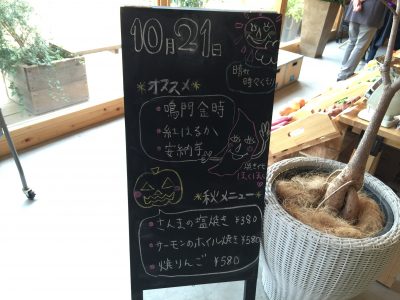 10月21日
晴れ
時々くもり
*オススメ*
・鳴門金時
・紅はるか
・安納芋
焼きイモ
ほくほく
*秋メニュー*
・さんまの塩焼き ¥380
・サーモンのホイル焼き ¥580
・焼りんご ¥580